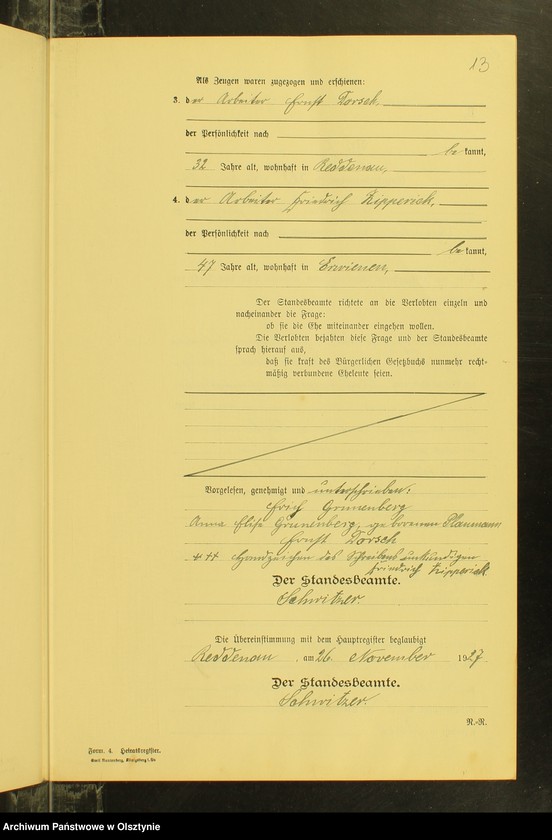 13
Als Zeugen waren zugezogen und erschienen:
3. der Arbeiter Ernst Dorsch,
der Persönlichkeit nach
bekannt,
32 Jahre alt, wohnhaft in Reddenau,
4. der Arbeiter Friedrich Kipperick,
der Persönlichkeit nach
bekannt,
47 Jahre alt, wohnhaft in Erwienen,
Der Standesbeamte richtete an die Verlobten einzeln und
nacheinander die Frage:
ob sie die Ehe miteinander eingehen wollen.
Die Verlobten bejahten diese Frage und der Standesbeamte
sprach hierauf aus,
daß sie kraft des Bürgerlichen Gesetzbuchs nunmehr recht-
mäßig verbundene Eheleute seien.
Vorgelesen, genehmigt und unterschrieben:
Erich Grunenberg
Anna Elise Grunenberg, geborenen Plaumann
Ernst Dorsch
+++ Handzeichen des Schreibens unkundigen
Friedrich Kipperick
Der Standesbeamte.
Schwitzer.
Die Übereinstimmung mit dem Hauptregister beglaubigt
Reddenau, am 26. November 1927
Der Standesbeamte.
Schwitzer.
R.-R.
Form. 4. Heiratsregister.
Archiwum Państwowe w Olsztynie